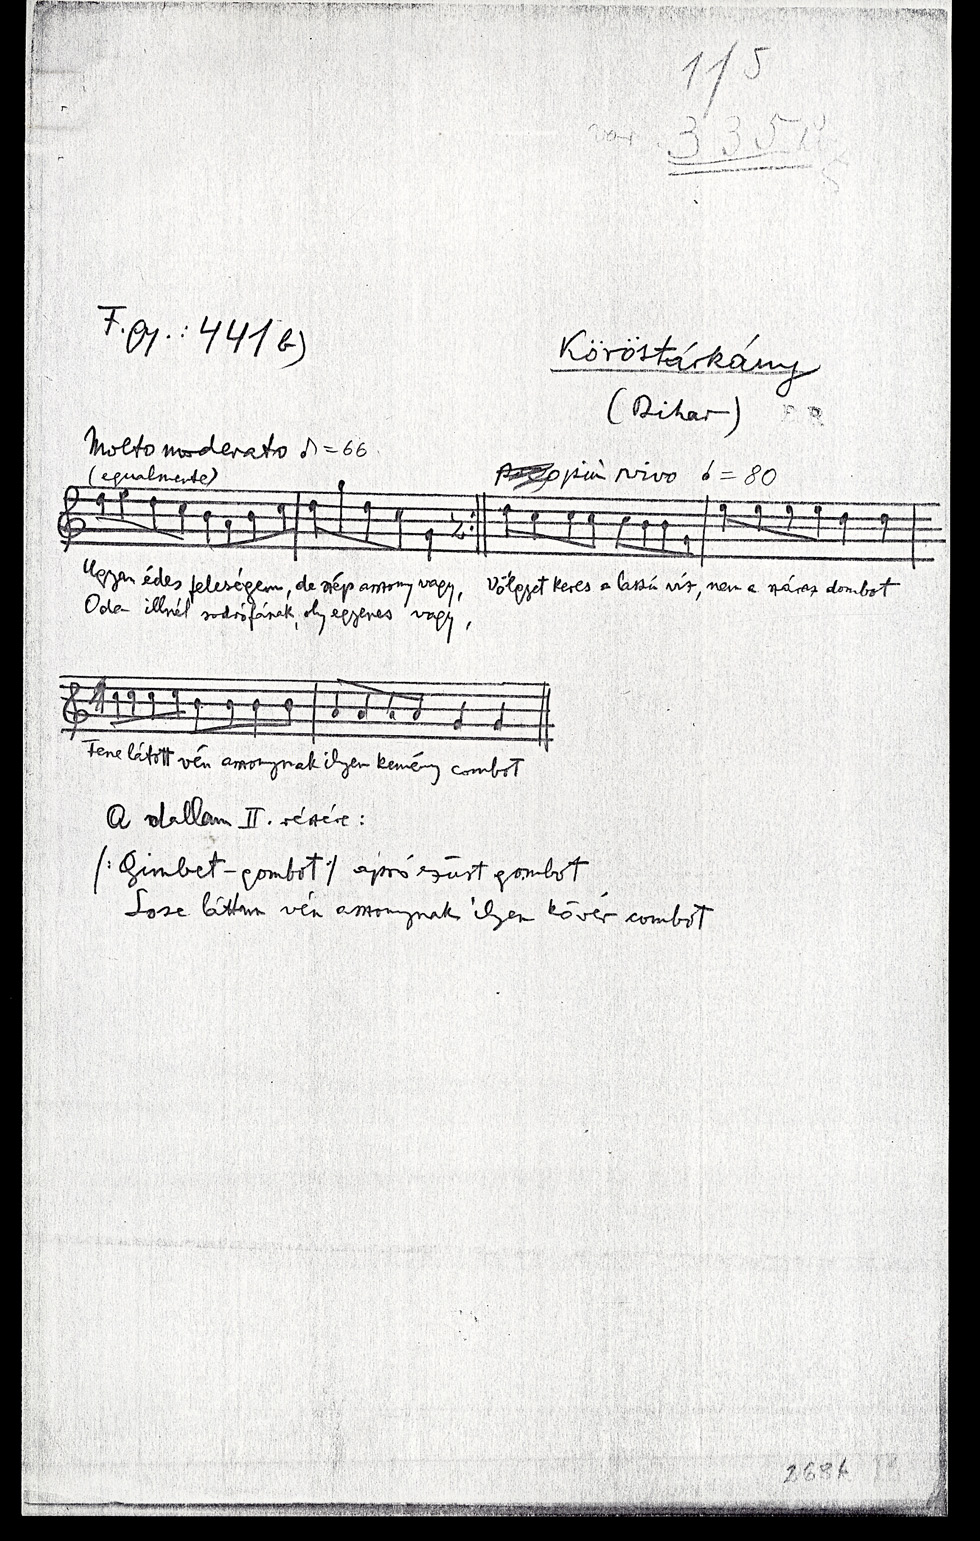 11/5
var. 335
F. Gy.: 441 b)
Köröstárkány
(Bihar)
Molto moderato ♪ = 66
(egualmente)
più vivo = 80
Ugyan édes feleségem, de szép asszony vagy, Völgyet keres a lassú víz, nem a száraz dombot
Oda illnél sodrófának, oly egyenes vagy,
Fene látott vén asszonynak ilyen kemény combot
A dallam II. részére:
/: Gimbet-gombot :/ apró ezüst gombot
Sose láttam vén asszonynak ilyen kövér combot